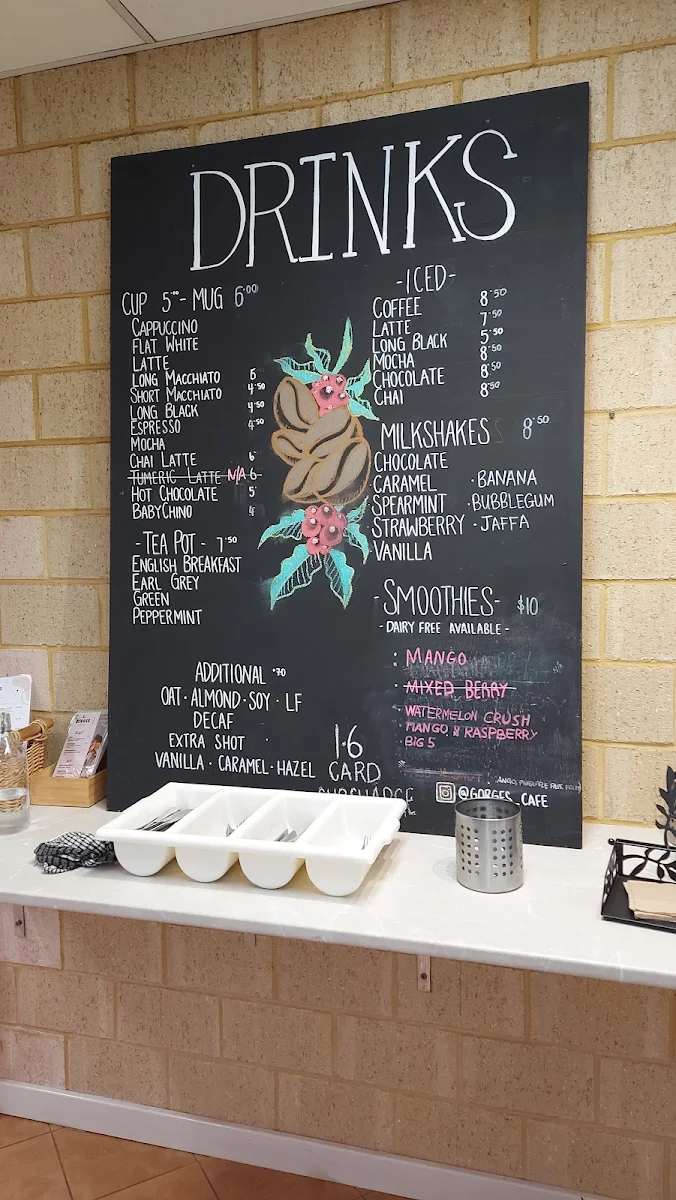 DRINKS
CUP 5.00 - MUG 6.00
CAPPUCCINO
FLAT WHITE
LATTE
LONG MACCHIATO 5
SHORT MACCHIATO 4.50
LONG BLACK 4.50
ESPRESSO 4.50
MOCHA
CHAI LATTE 6
TUMERIC LATTE N/A 6
HOT CHOCOLATE 5
BABYCHINO 4
-TEA POT- 7.50
ENGLISH BREAKFAST
EARL GREY
GREEN
PEPPERMINT
ADDITIONAL .70
OAT · ALMOND · SOY · LF
DECAF
EXTRA SHOT
VANILLA · CARAMEL · HAZEL
1.6
CARD
SURCHARGE
-ICED-
COFFEE 8.50
LATTE 7.50
LONG BLACK 5.50
MOCHA 8.50
CHOCOLATE 8.50
CHAI 8.50
MILKSHAKES 8.50
CHOCOLATE
CARAMEL · BANANA
SPEARMINT · BUBBLEGUM
STRAWBERRY · JAFFA
VANILLA
-SMOOTHIES- $10
-DAIRY FREE AVAILABLE-
MANGO
MIXED BERRY
WATERMELON CRUSH
MANGO & RASPBERRY
BIG 5
@GORGES_CAFE